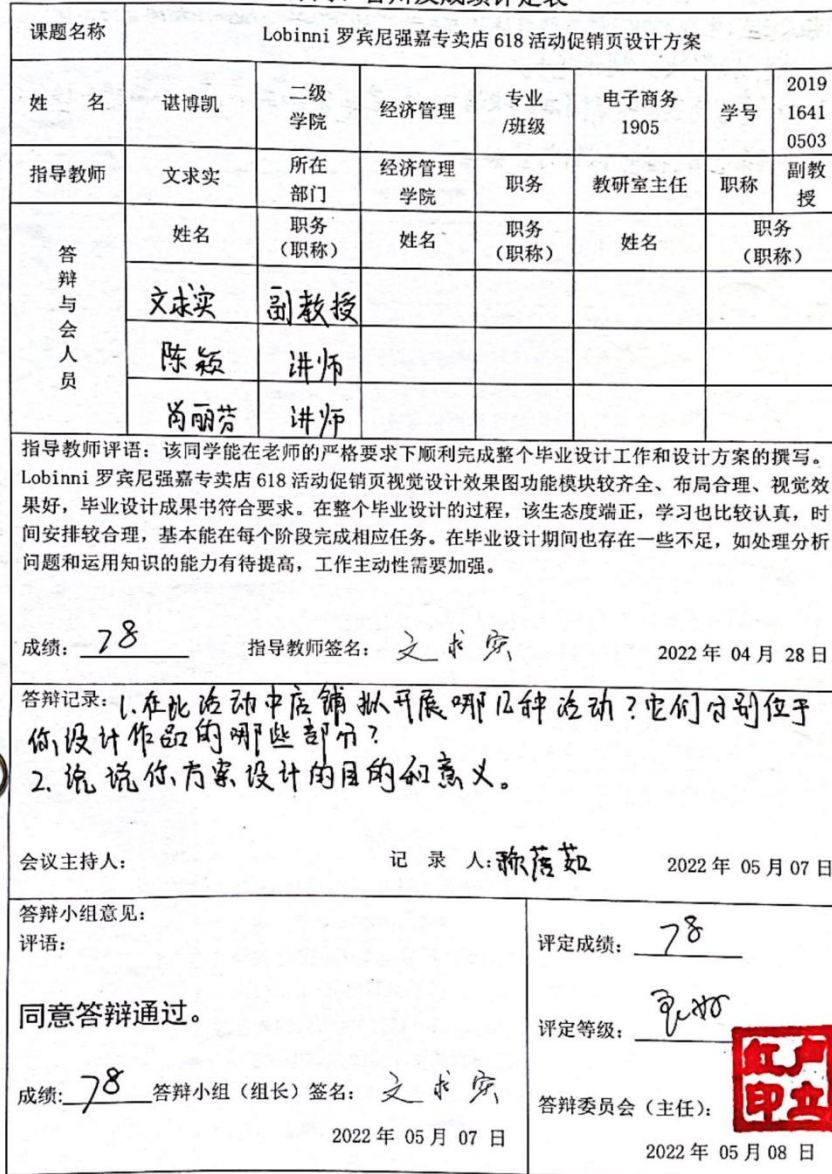 课题名称 Lobinni 罗宾尼强嘉专卖店 618 活动促销页设计方案
姓 名 谌博凯 二级学院 经济管理 专业/班级 电子商务1905 学号 2019 1641 0503
指导教师 文求实 所在部门 经济管理学院 职务 教研室主任 职称 副教授
答辩与会人员 姓名 职务（职称） 姓名 职务（职称） 姓名 职务（职称）
文求实 副教授
陈颖 讲师
肖丽芬 讲师
指导教师评语：该同学能在老师的严格要求下顺利完成整个毕业设计工作和设计方案的撰写。
Lobinni 罗宾尼强嘉专卖店 618 活动促销页视觉设计效果图功能模块较齐全、布局合理、视觉效
果好，毕业设计成果书符合要求。在整个毕业设计的过程，该生态度端正，学习也比较认真，时
间安排较合理，基本能在每个阶段完成相应任务。在毕业设计期间也存在一些不足，如处理分析
问题和运用知识的能力有待提高，工作主动性需要加强。
成绩：78 指导教师签名：文求实 2022 年 04 月 28 日
答辩记录：1.在此活动中店铺拟开展哪几种活动？它们分别位于
你设计作品的哪些部分？
2.说说你方案设计的目的和意义。
会议主持人： 记 录 人： 2022 年 05 月 07 日
答辩小组意见：
评语：
同意答辩通过。
成绩：78 答辩小组（组长）签名：文求实
2022 年 05 月 07 日
评定成绩：78
评定等级：良好
答辩委员会（主任）：卢立红印
2022 年 05 月 08 日